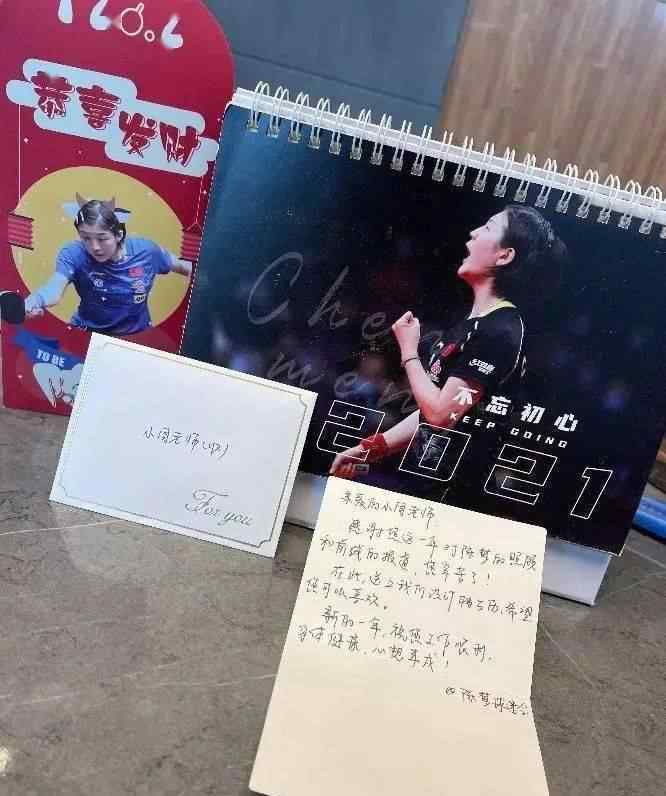 恭喜发财
TO BE
Chen
men
不忘初心
KEEP GOING
2021
小周老师(收)
For you
亲爱的小周老师：
感谢您这一年对陈梦的照顾
和前线的报道，您辛苦了！
在此，送上我们设计的台历，希望
您可以喜欢。
新的一年，祝您工作顺利，
身体健康，心想事成！
@陈梦球迷会